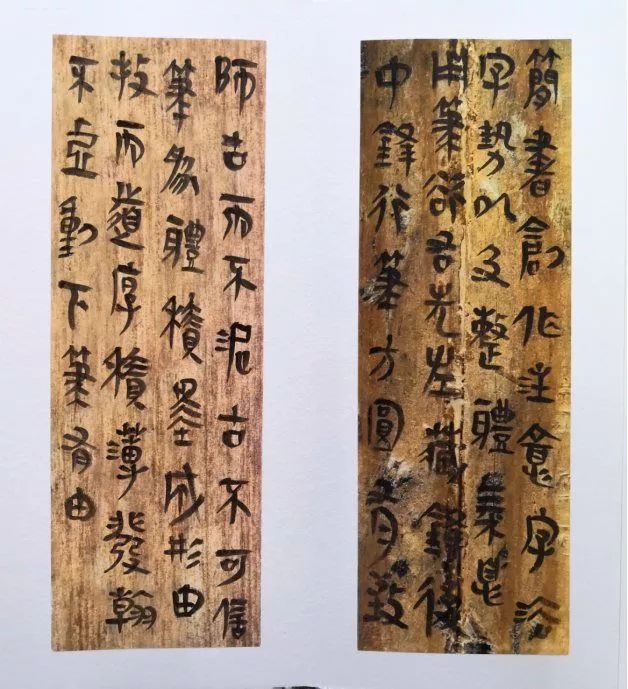 簡書創作注意字法
字勢以及整體氣息
用筆欲右先左藏鋒後
中鋒行筆方圓有致
師古而不泥古不可信
筆為體積墨成形由
放而遒厚積薄發翰
不虛動下筆有由